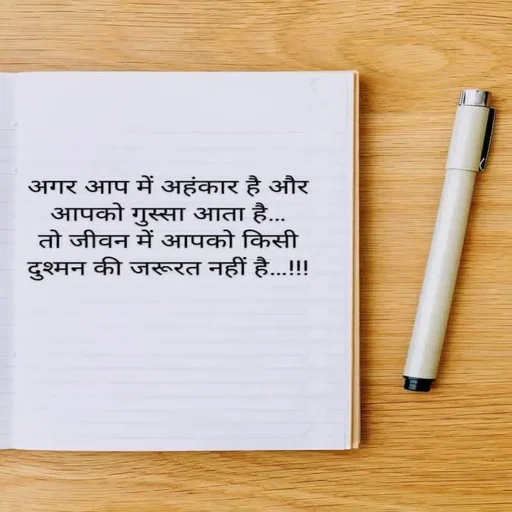 अगर आप में अहंकार है और
आपको गुस्सा आता है...
तो जीवन में आपको किसी
दुश्मन की जरूरत नहीं है...!!!